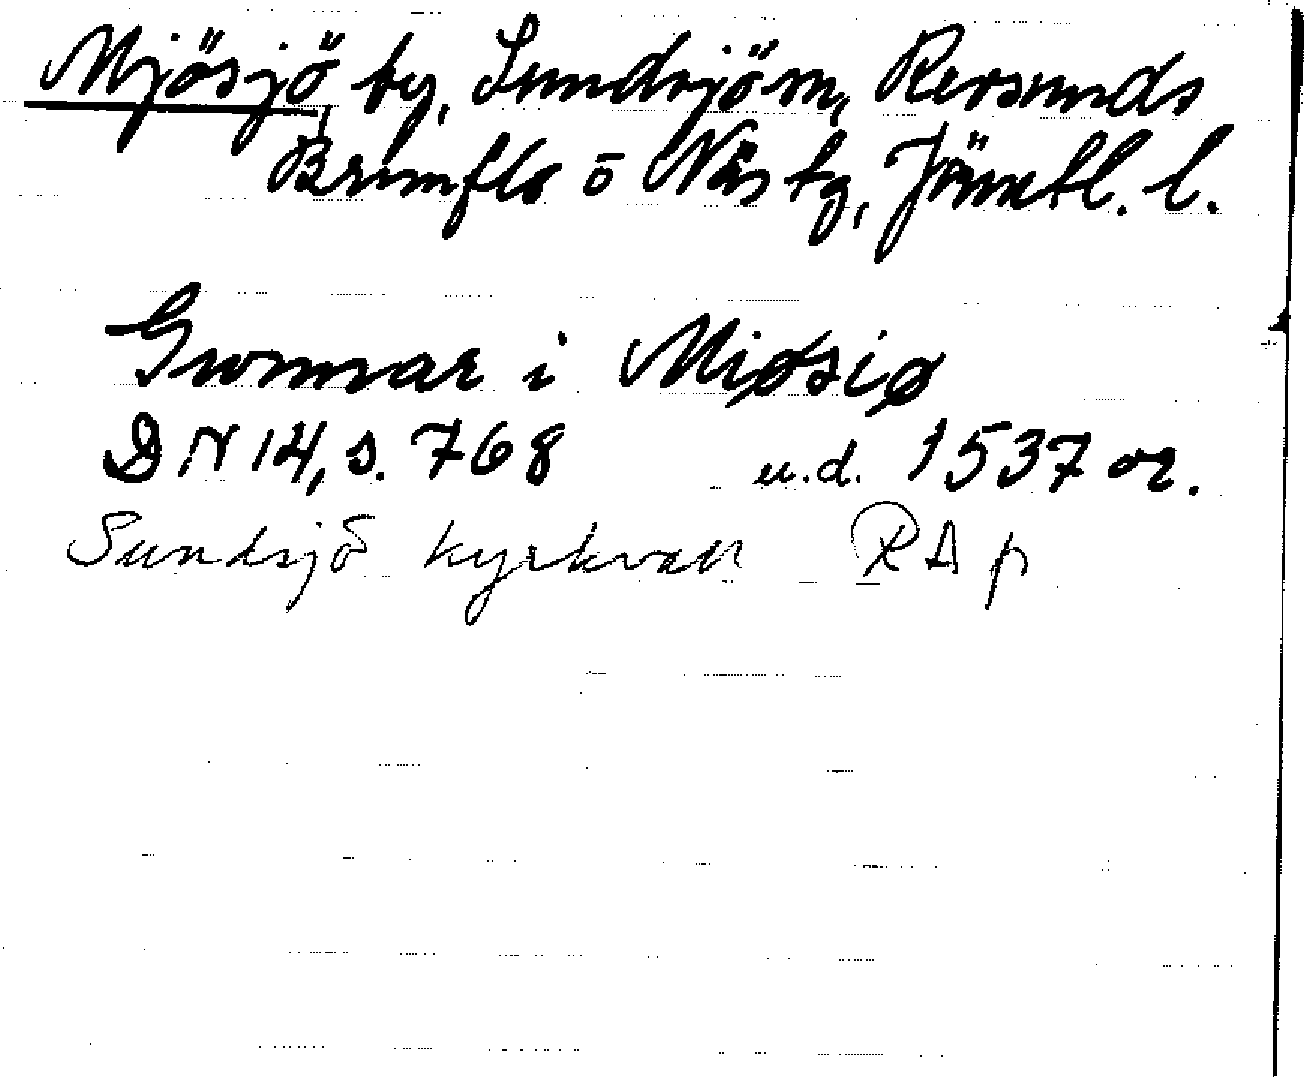 Mjösjö by, Sundsjö sn, Revsunds
Brunflo o Näs tg, Jämtl. l.
Gunnar i Miøsiø
DN 14, s. 768 u.d. 1537 or.
Sundsjö kyrkvall RAp